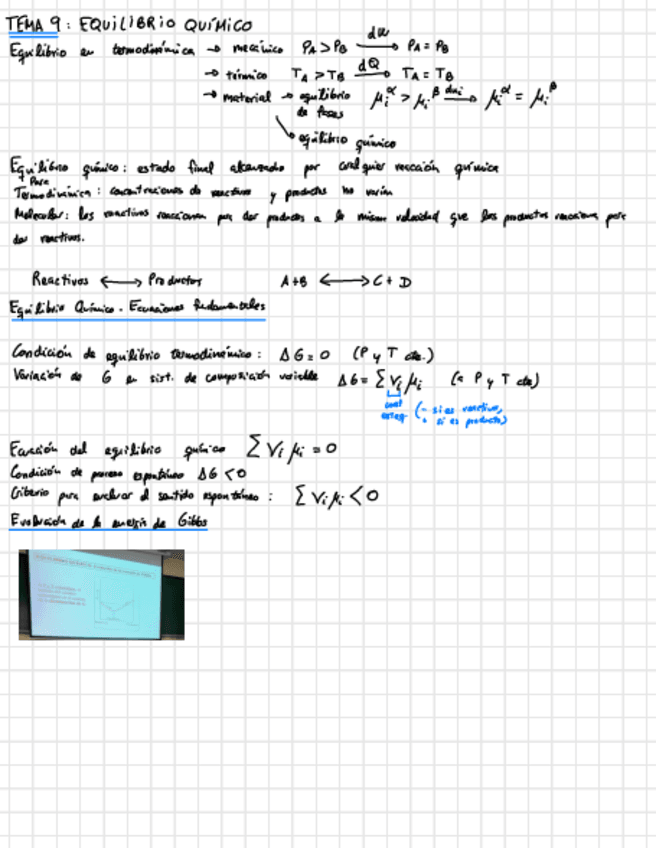 TEMA 9: EQUILIBRIO QUÍMICO
Equilibrio en termodinámica → mecánico PA > PB dw → PA = PB
→ térmico TA > TB dQ → TA = TB
→ material → equilibrio de fases μiα > μiβ dni → μiα = μiβ
↘ equilibrio químico
Equilibrio químico: estado final alcanzado por cualquier reacción química
Para
Termodinámica: concentraciones de reactivos y productos no varían
Molecular: los reactivos reaccionan para dar productos a la misma velocidad que los productos reacciona para
dar reactivos.
Reactivos ⟷ Productos A+B ⟷ C+D
Equilibrio Químico. Ecuaciones fundamentales
Condición de equilibrio termodinámico: ΔG = 0 (P y T cte.)
Variación de G en sist. de composición variable ΔG = Σ Vi μi (a P y T cte)
coef esteq (- si es reactivo,
+ si es producto)
Ecuación del equilibrio químico Σ Vi μi = 0
Condición de proceso espontáneo ΔG < 0
Criterio para evaluar el sentido espontáneo: Σ Vi μi < 0
Evolución de la energía de Gibbs